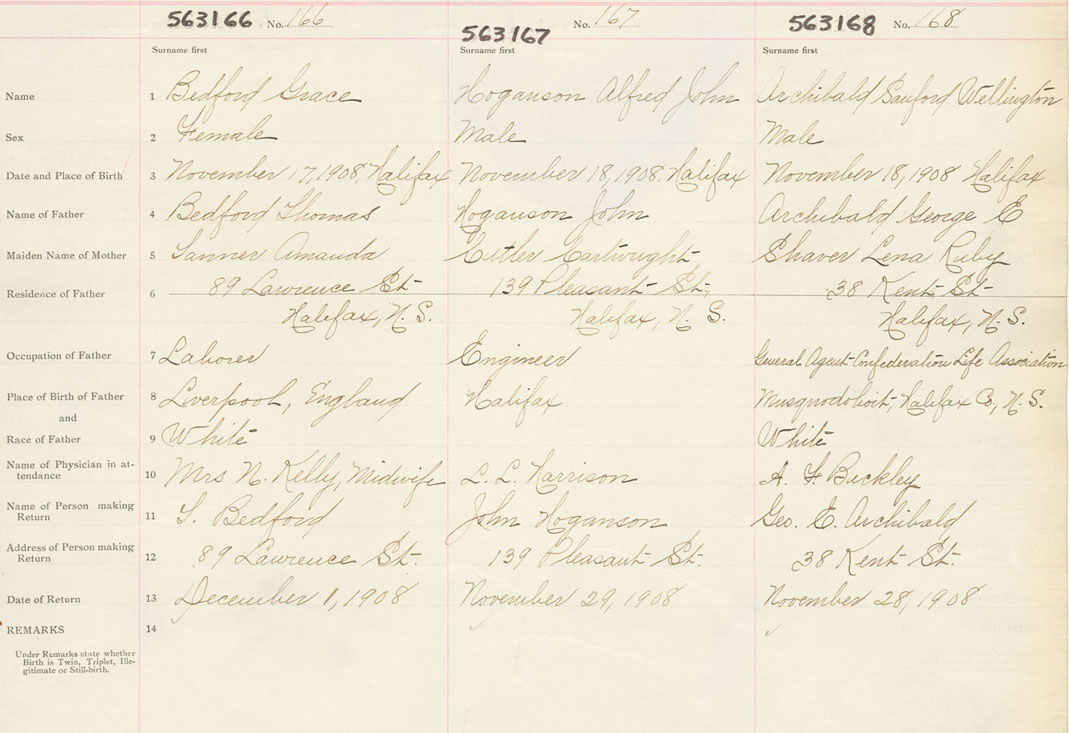 563166 No. 166 563167 No. 167 563168 No. 168
Surname first Surname first Surname first
Name 1 Bedford Grace Hoganson Alfred John Archibald Sanford Wellington
Sex 2 Female Male Male
Date and Place of Birth 3 November 17, 1908. Halifax November 18, 1908. Halifax November 18, 1908 Halifax
Name of Father 4 Bedford Thomas Hoganson John Archibald George E
Maiden Name of Mother 5 Sanner Amanda Cutler Cartwright Shaver Lena Ruby
Residence of Father 6 89 Lawrence St. 139 Pleasant St. 38 Kent St.
Halifax, N. S. Halifax, N. S. Halifax, N. S.
Occupation of Father 7 Laborer Engineer General Agent Confederation Life Association
Place of Birth of Father 8 Liverpool, England Halifax Musquodoboit, Halifax Co, N. S.
and
Race of Father 9 White White
Name of Physician in at-
tendance 10 Mrs N. Kelly, Midwife L. L. Harrison A. F Buckley
Name of Person making
Return 11 T. Bedford John Hoganson Geo. E. Archibald
Address of Person making
Return 12 89 Lawrence St. 139 Pleasant St. 38 Kent St.
Date of Return 13 December 1, 1908 November 29, 1908 November 28, 1908
REMARKS 14
Under Remarks state whether
Birth is Twin, Triplet, Ille-
gitimate or Still-birth.